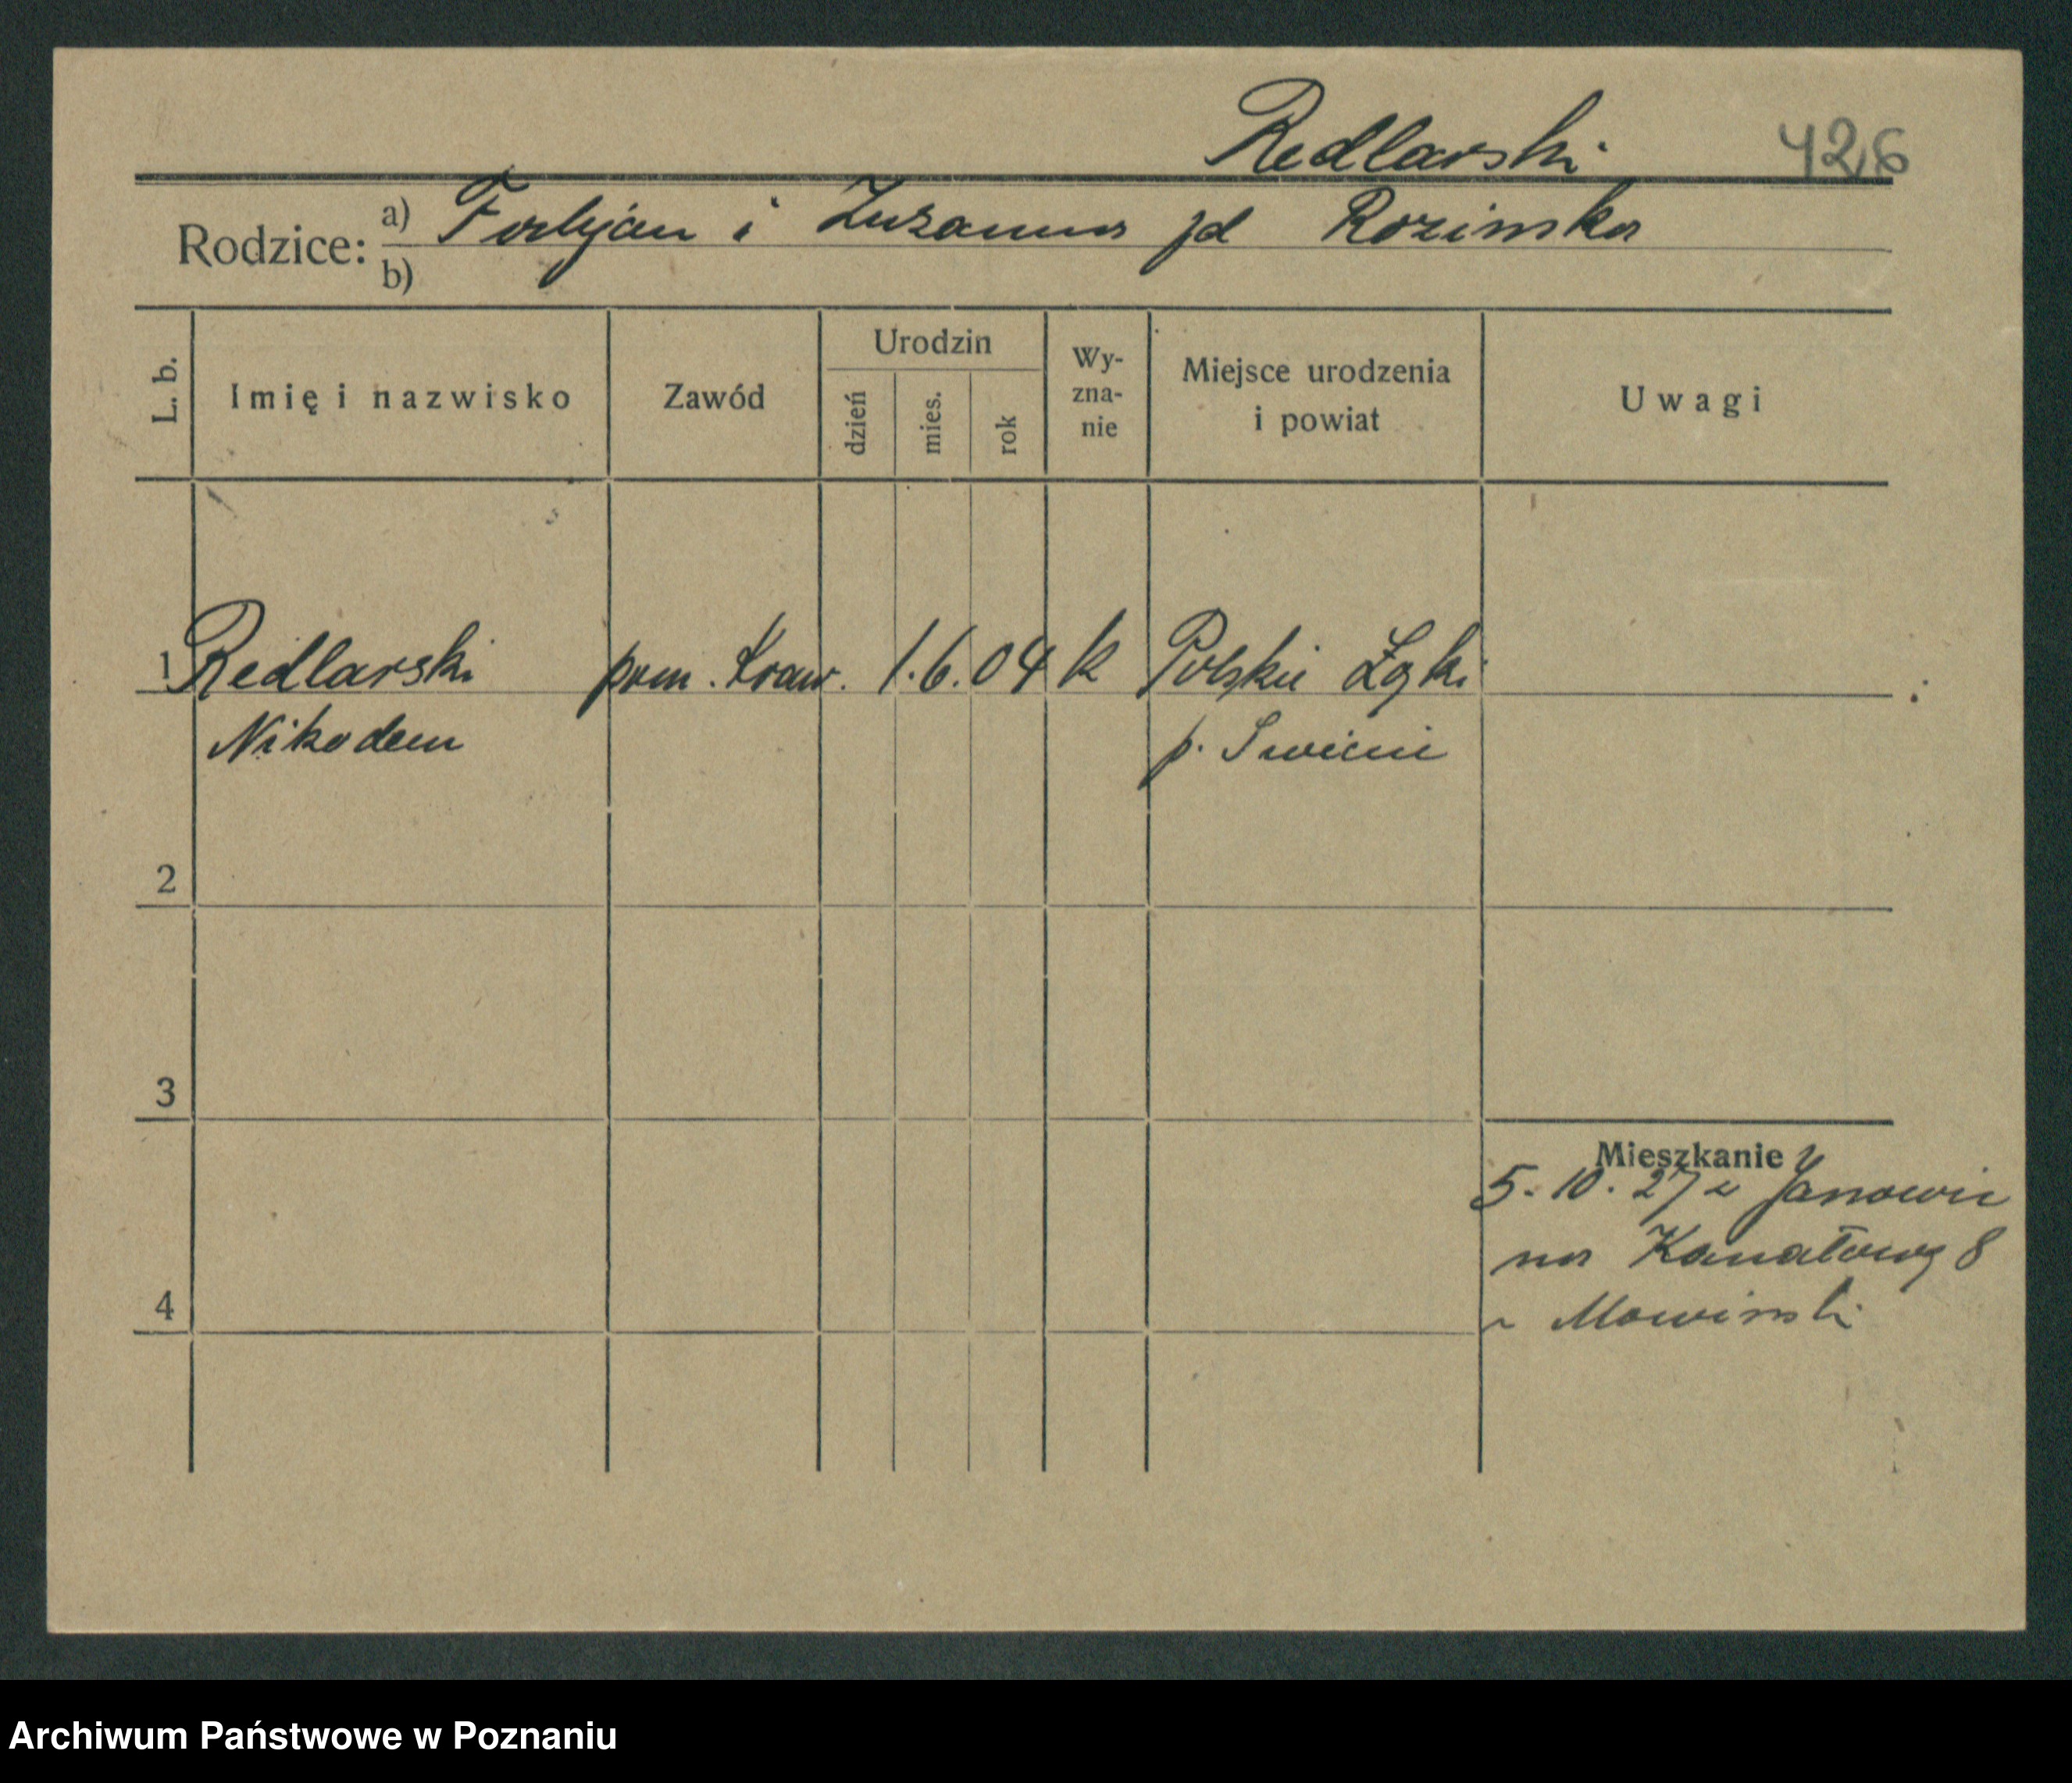 Redlarski 426
Rodzice: a) Fabjan i Zuzanna zd Rozinska
b)
L. b. Imię i nazwisko Zawód Urodzin dzień mies. rok Wy-zna-nie Miejsce urodzenia i powiat Uwagi
1 Redlarski pom. kraw. 1. 6. 04 k Polskie Łąki
Nikodem p. Swiecie
2
3
Mieszkanie
5. 10. 27 z Janowic
na Kanałową 8
4
Archiwum Państwowe w Poznaniu